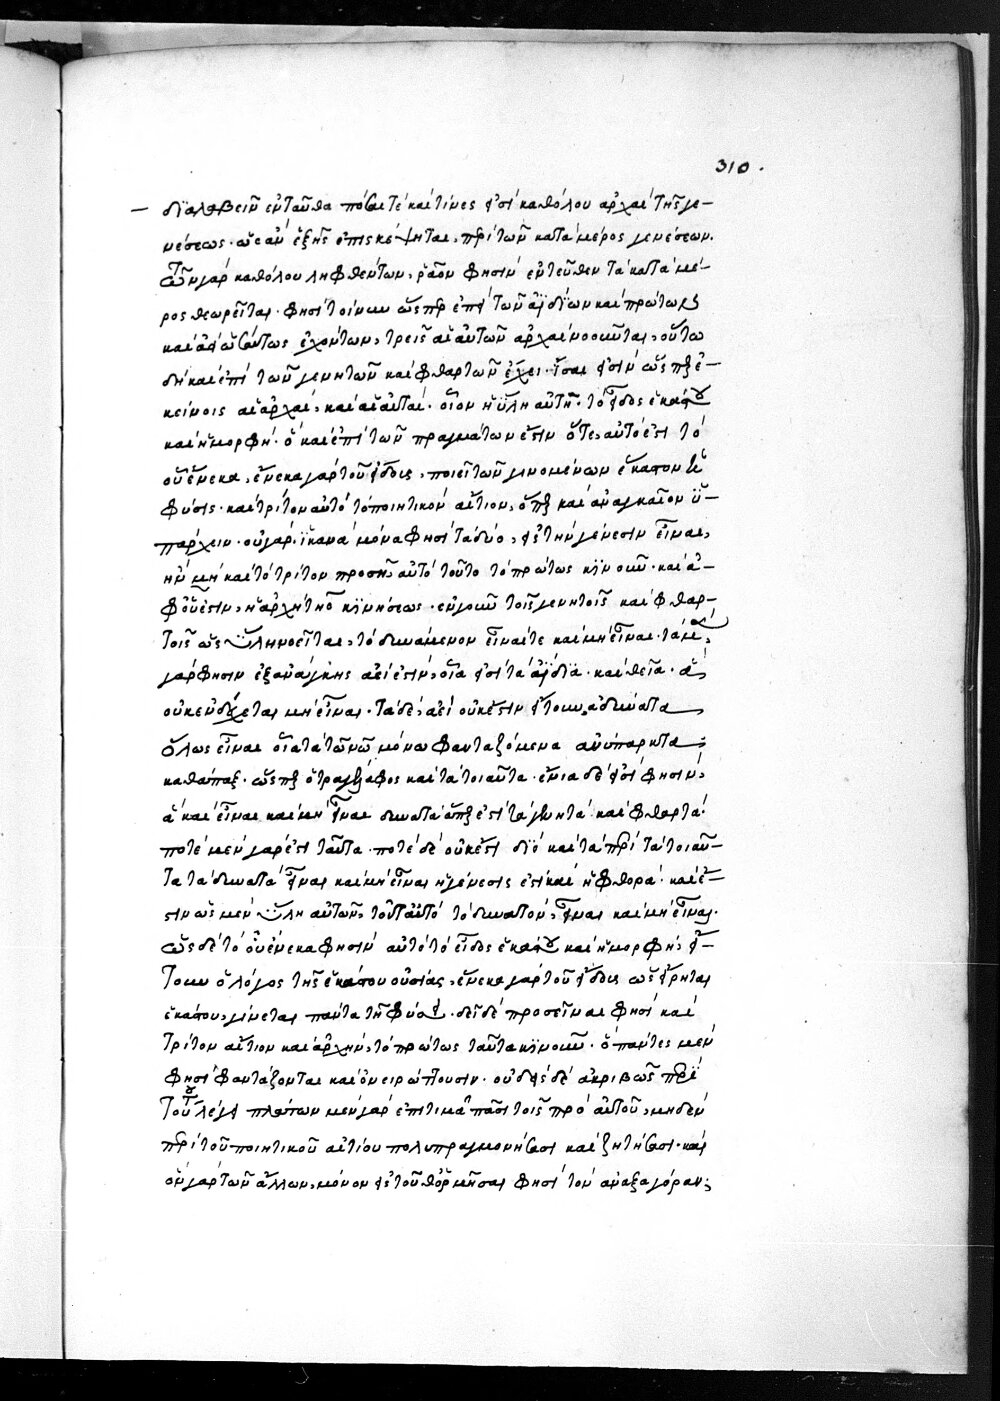 310.
– διαλαβεῖν ἐνταῦθα πόσαι τέ καὶ τίνες εἰσὶ καθόλου ἀρχαὶ τῆς γε-
νέσεως· ὡς ἂν ἑξῆς ἐπισκέψηται, περὶ τῶν κατὰ μέρος γενέσεων.
τῶν γὰρ καθόλου ληφθέντων, ῥᾶον φησὶν ἐντεῦθεν τὰ κατὰ μέ-
ρος θεωρεῖται. φησὶ τοίνυν ὥσπερ ἐπὶ τῶν ἀϊδίων καὶ πρώτως
καὶ ἀεὶ ὡσαύτως ἐχόντων, τρεῖς αἱ αὐτῶν ἀρχαὶ νοοῦνται, οὕτω
δὴ καὶ ἐπὶ τῶν γενητῶν καὶ φθαρτῶν ἔχει. ἴσαι εἰσὶν ὥσπερ ἐ-
κείνοις αἱ ἀρχαὶ, καὶ αἱ αὐταί. οἷον ἡ ὕλη αὐτή. τὸ εἶδος ἑκάστου
καὶ ἡ μορφή. ὃ καὶ ἐπὶ τῶν πραγμάτων ἐστὶν ὅτε, αὐτό ἐστι τὸ
οὗ ἕνεκα, ἕνεκα γὰρ τοῦ εἴδους, ποιεῖ τῶν γινομένων ἕκαστον ἡ
φύσις. καὶ τρίτον αὐτὸ τὸ ποιητικὸν αἴτιον, ὅπερ καὶ ἀναγκαῖον ὑ-
πάρχειν. οὐ γὰρ ἱκανὰ μόνα φησὶ τὰ δύο, εἰς τὴν γένεσιν εἶναι,
ἢν μὴ καὶ τὸ τρίτον προσῇ, αὐτὸ τοῦτο τὸ πρώτως κινοῦν. καὶ ἀ-
φ' οὗ ἐστιν, ἡ ἀρχὴ τῆς κινήσεως. ἐν γοῦν τοῖς γενητοῖς καὶ φθαρ-
τοῖς ὡς ὕλη νοεῖται, τὸ δυνάμενον εἶναί τε καὶ μὴ εἶναι. τὰ μὲν
γάρ φησιν ἐξ ἀνάγκης ἀεί ἐστιν, οἷά εἰσι τὰ ἀΐδια. καὶ θεῖα. ἃ
οὐκ ἐνδέχεται μὴ εἶναι. τὰ δὲ, ἀεὶ οὐκ ἔστιν ἤτοι ἀδύνατα
ὅλως εἶναι οἷα τὰ τῷ νῷ μόνῳ φανταζόμενα ἀνύπαρκτα
καθάπαξ. ὥσπερ ὁ τραγέλαφος καὶ τὰ τοιαῦτα. ἔνια δέ εἰσι φησὶν,
ἃ καὶ εἶναι καὶ μὴ εἶναι δυνατὰ ἅπερ ἐστὶ τὰ γενητὰ καὶ φθαρτά.
ποτὲ μὲν γὰρ ἐστι ταῦτα. ποτὲ δὲ οὐκ ἔστι διὸ καὶ τὰ περὶ τὰ τοιαῦ-
τα τὰ δυνατὰ εἶναι καὶ μὴ εἶναι ἡ γένεσις ἐστὶ καὶ ἡ φθορά. καὶ ἔ-
στιν ὡς μὲν ὕλη αὐτῶν, τοῦτ' αὐτὸ τὸ δυνατὸν, εἶναι καὶ μὴ εἶναι.
ὡς δὲ τὸ οὗ ἕνεκα φησὶν αὐτὸ τὸ εἶδος ἑκάστου καὶ ἡ μορφὴ, ἤ-
τοι ὁ λόγος τῆς ἑκάστου οὐσίας, ἕνεκα γὰρ τοῦ εἴδους ὡς εἴρηται
ἑκάστου, γίνεται πάντα τῇ φύσει. δεῖ δὲ προσεῖναι φησὶ καὶ
τρίτον αἴτιον καὶ ἀρχὴν, τὸ πρώτως ταῦτα κινοῦν. ὃ πάντες μέν
φησι φαντάζονται καὶ ὀνειρώττουσιν. οὐδεὶς δὲ ἀκριβῶς περὶ
τούτου λέγει πλάτων μὲν γὰρ ἐπιτιμᾷ πᾶσι τοῖς πρὸ αὐτοῦ, μηδὲν
περὶ τοῦ ποιητικοῦ αἰτίου πολυπραγμονήσασι καὶ ζητήσασι. καὶ
ὃν γὰρ τῶν ἄλλων, μόνον εἰς τοῦθ' ὁρμῆσαι φησὶ τὸν ἀναξαγόραν,